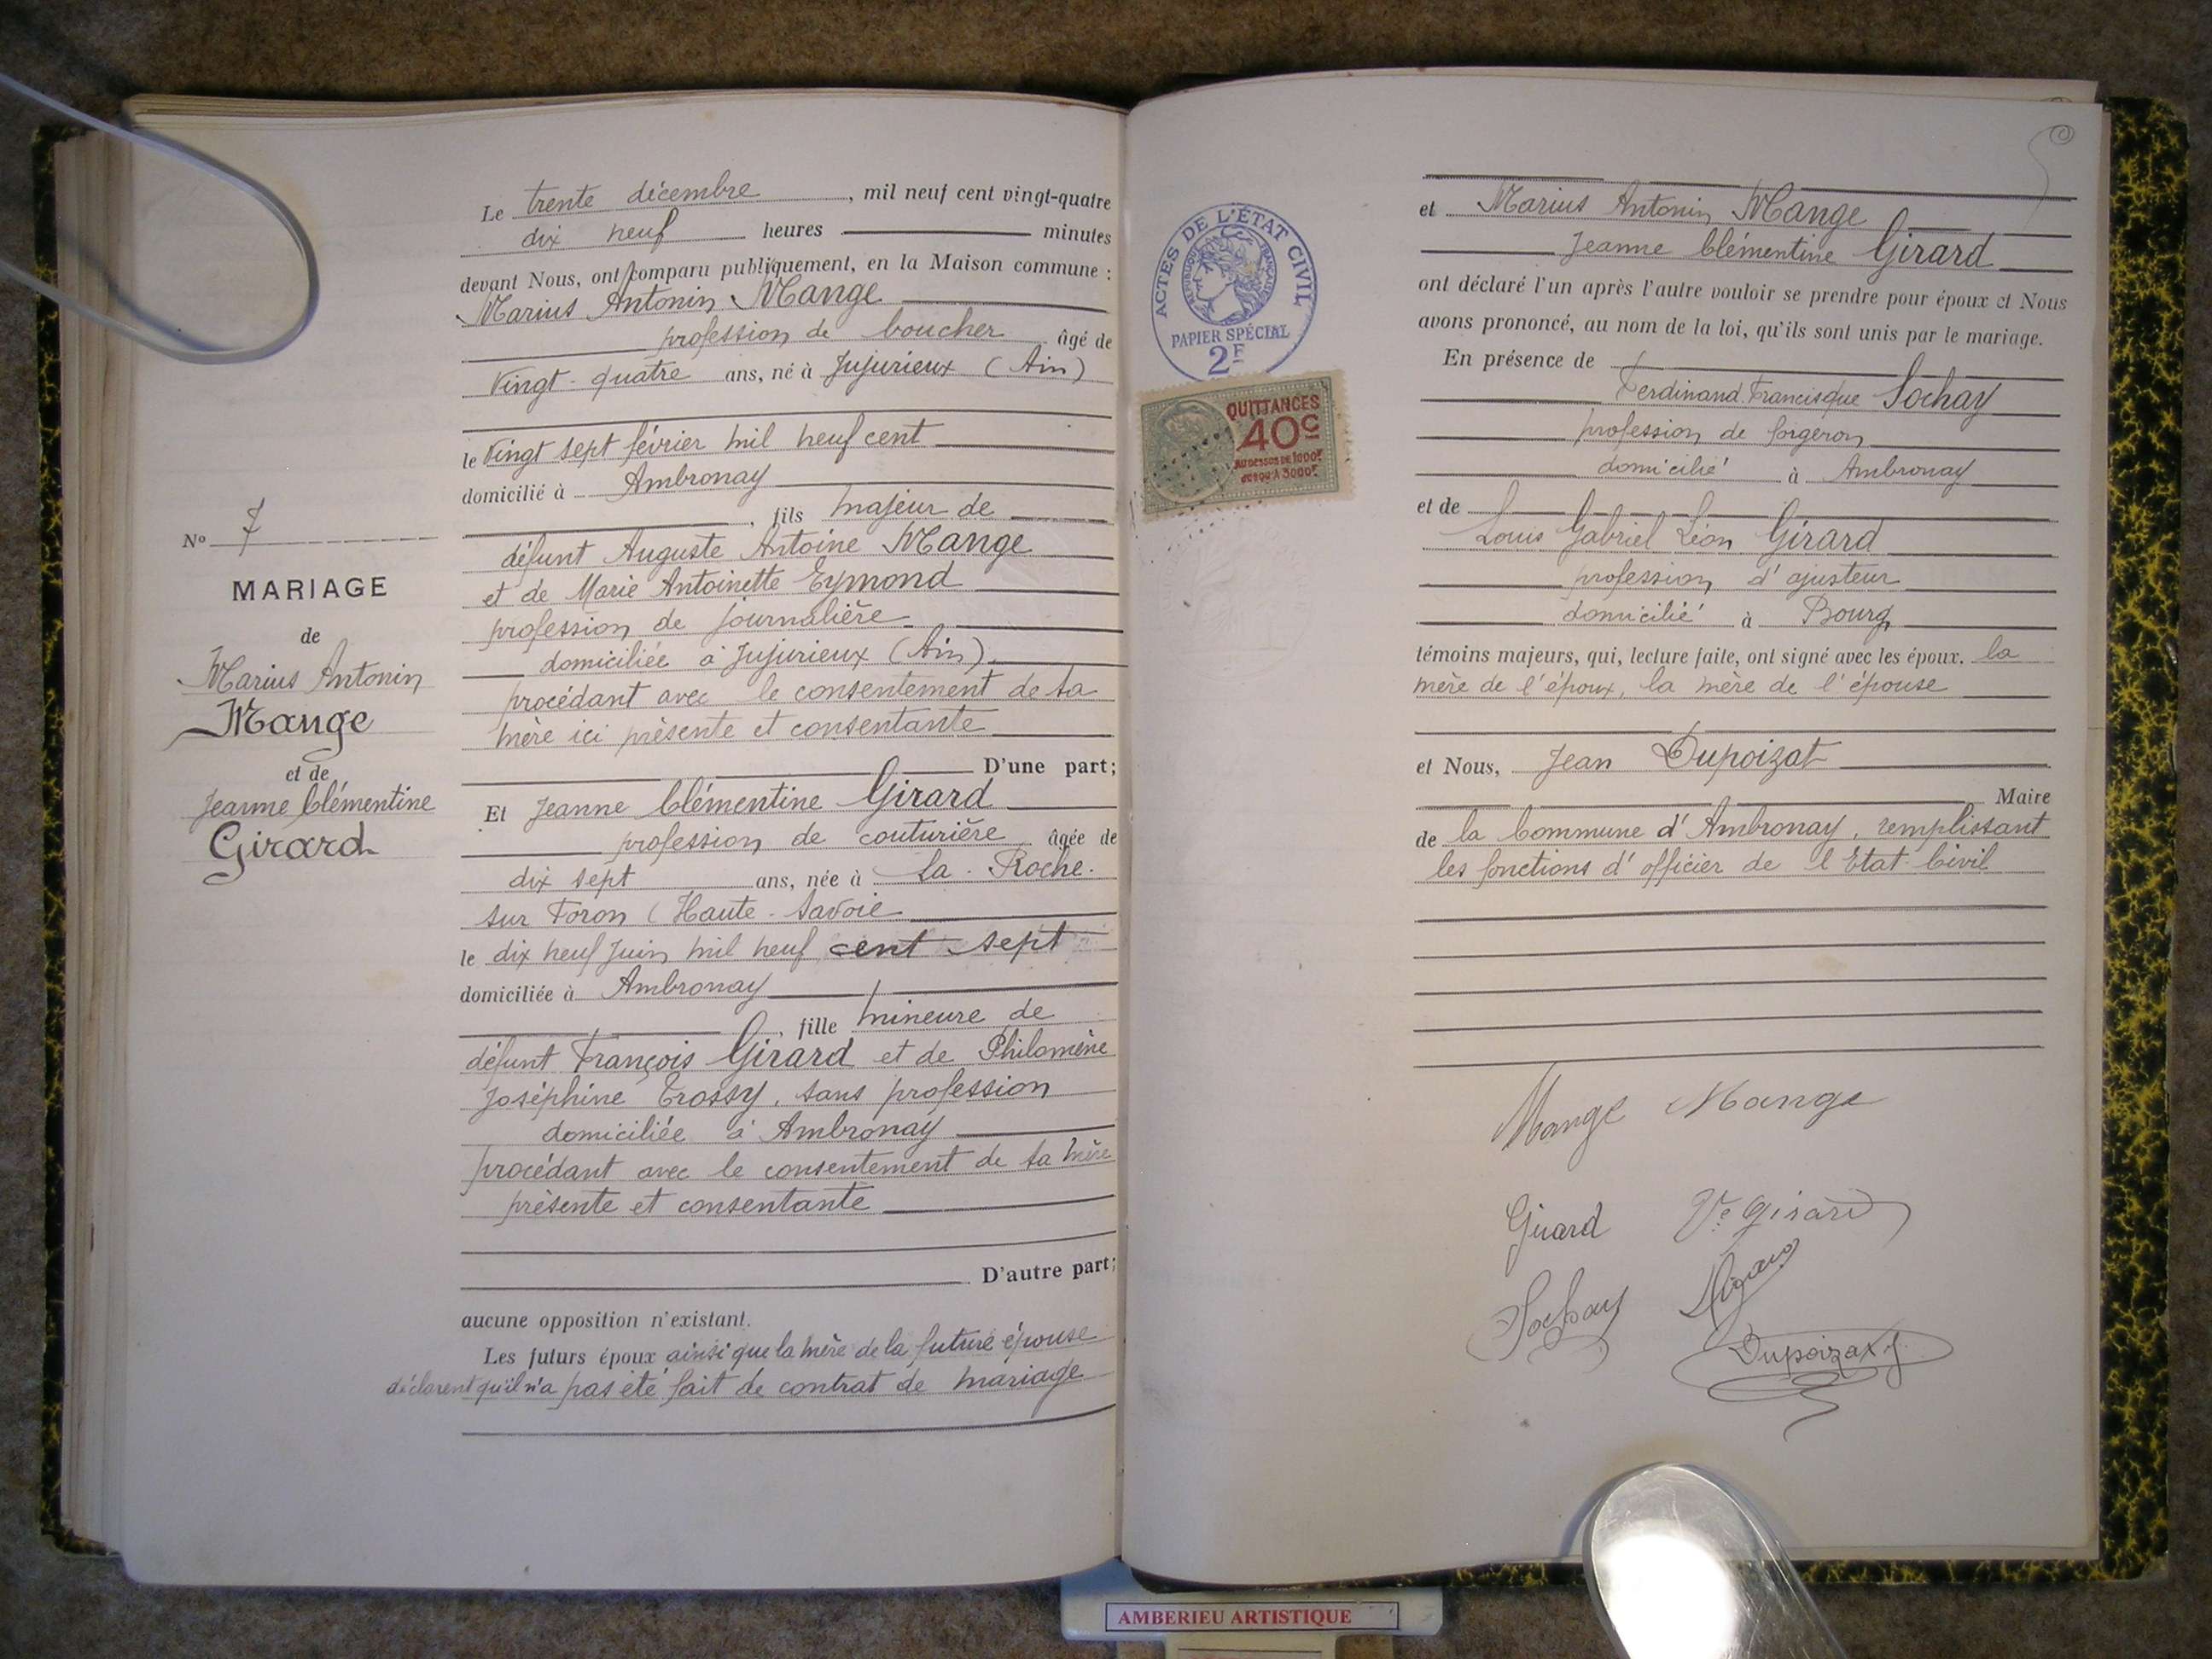 Le trente décembre, mil neuf cent vingt-quatre
dix neuf heures minutes
devant Nous, ont comparu publiquement, en la Maison commune :
Marius Antonin Mange
profession de boucher âgé de
vingt-quatre ans, né à Jujurieux (Ain)
le vingt sept février mil neuf cent
domicilié à Ambronay
, fils majeur de
défunt Auguste Antoine Mange
et de Marie Antoinette Eymond
profession de journalière
domiciliée à Jujurieux (Ain)
procédant avec le consentement de sa
mère ici présente et consentante
D'une part;
Et Jeanne Clémentine Girard
profession de couturière âgée de
dix sept ans, née à La-Roche-
sur Foron (Haute-Savoie
le dix neuf juin mil neuf cent sept
domiciliée à Ambronay
, fille mineure de
défunt François Girard et de Philomène
Joséphine Trossy, sans profession
domiciliée à Ambronay
procédant avec le consentement de sa mère
présente et consentante
D'autre part;
aucune opposition n'existant.
Les futurs époux ainsi que la mère de la future épouse
déclarent qu'il n'a pas été fait de contrat de mariage
N° 7
MARIAGE
de
Marius Antonin
Mange
et de
Jeanne Clémentine
Girard
ACTES DE L'ÉTAT CIVIL
RÉPUBLIQUE FRANÇAISE
PAPIER SPÉCIAL
2F
QUITTANCES
40c
AU DESSUS DE 1000F
JUSQU'À 3000F
et Marius Antonin Mange
Jeanne Clémentine Girard
ont déclaré l'un après l'autre vouloir se prendre pour époux et Nous
avons prononcé, au nom de la loi, qu'ils sont unis par le mariage.
En présence de
Ferdinand Francisque Sochay
profession de forgeron
domicilié à Ambronay
et de
Louis Gabriel Léon Girard
profession d'ajusteur
domicilié à Bourg
témoins majeurs, qui, lecture faite, ont signé avec les époux. la
mère de l'époux, la mère de l'épouse
et Nous, Jean Dupoizat
Maire
de la Commune d'Ambronay, remplissant
les fonctions d'officier de l'Etat-Civil
Mange Mange
Girard Ve Girard
Sochay
Dupoizat J.
AMBERIEU ARTISTIQUE